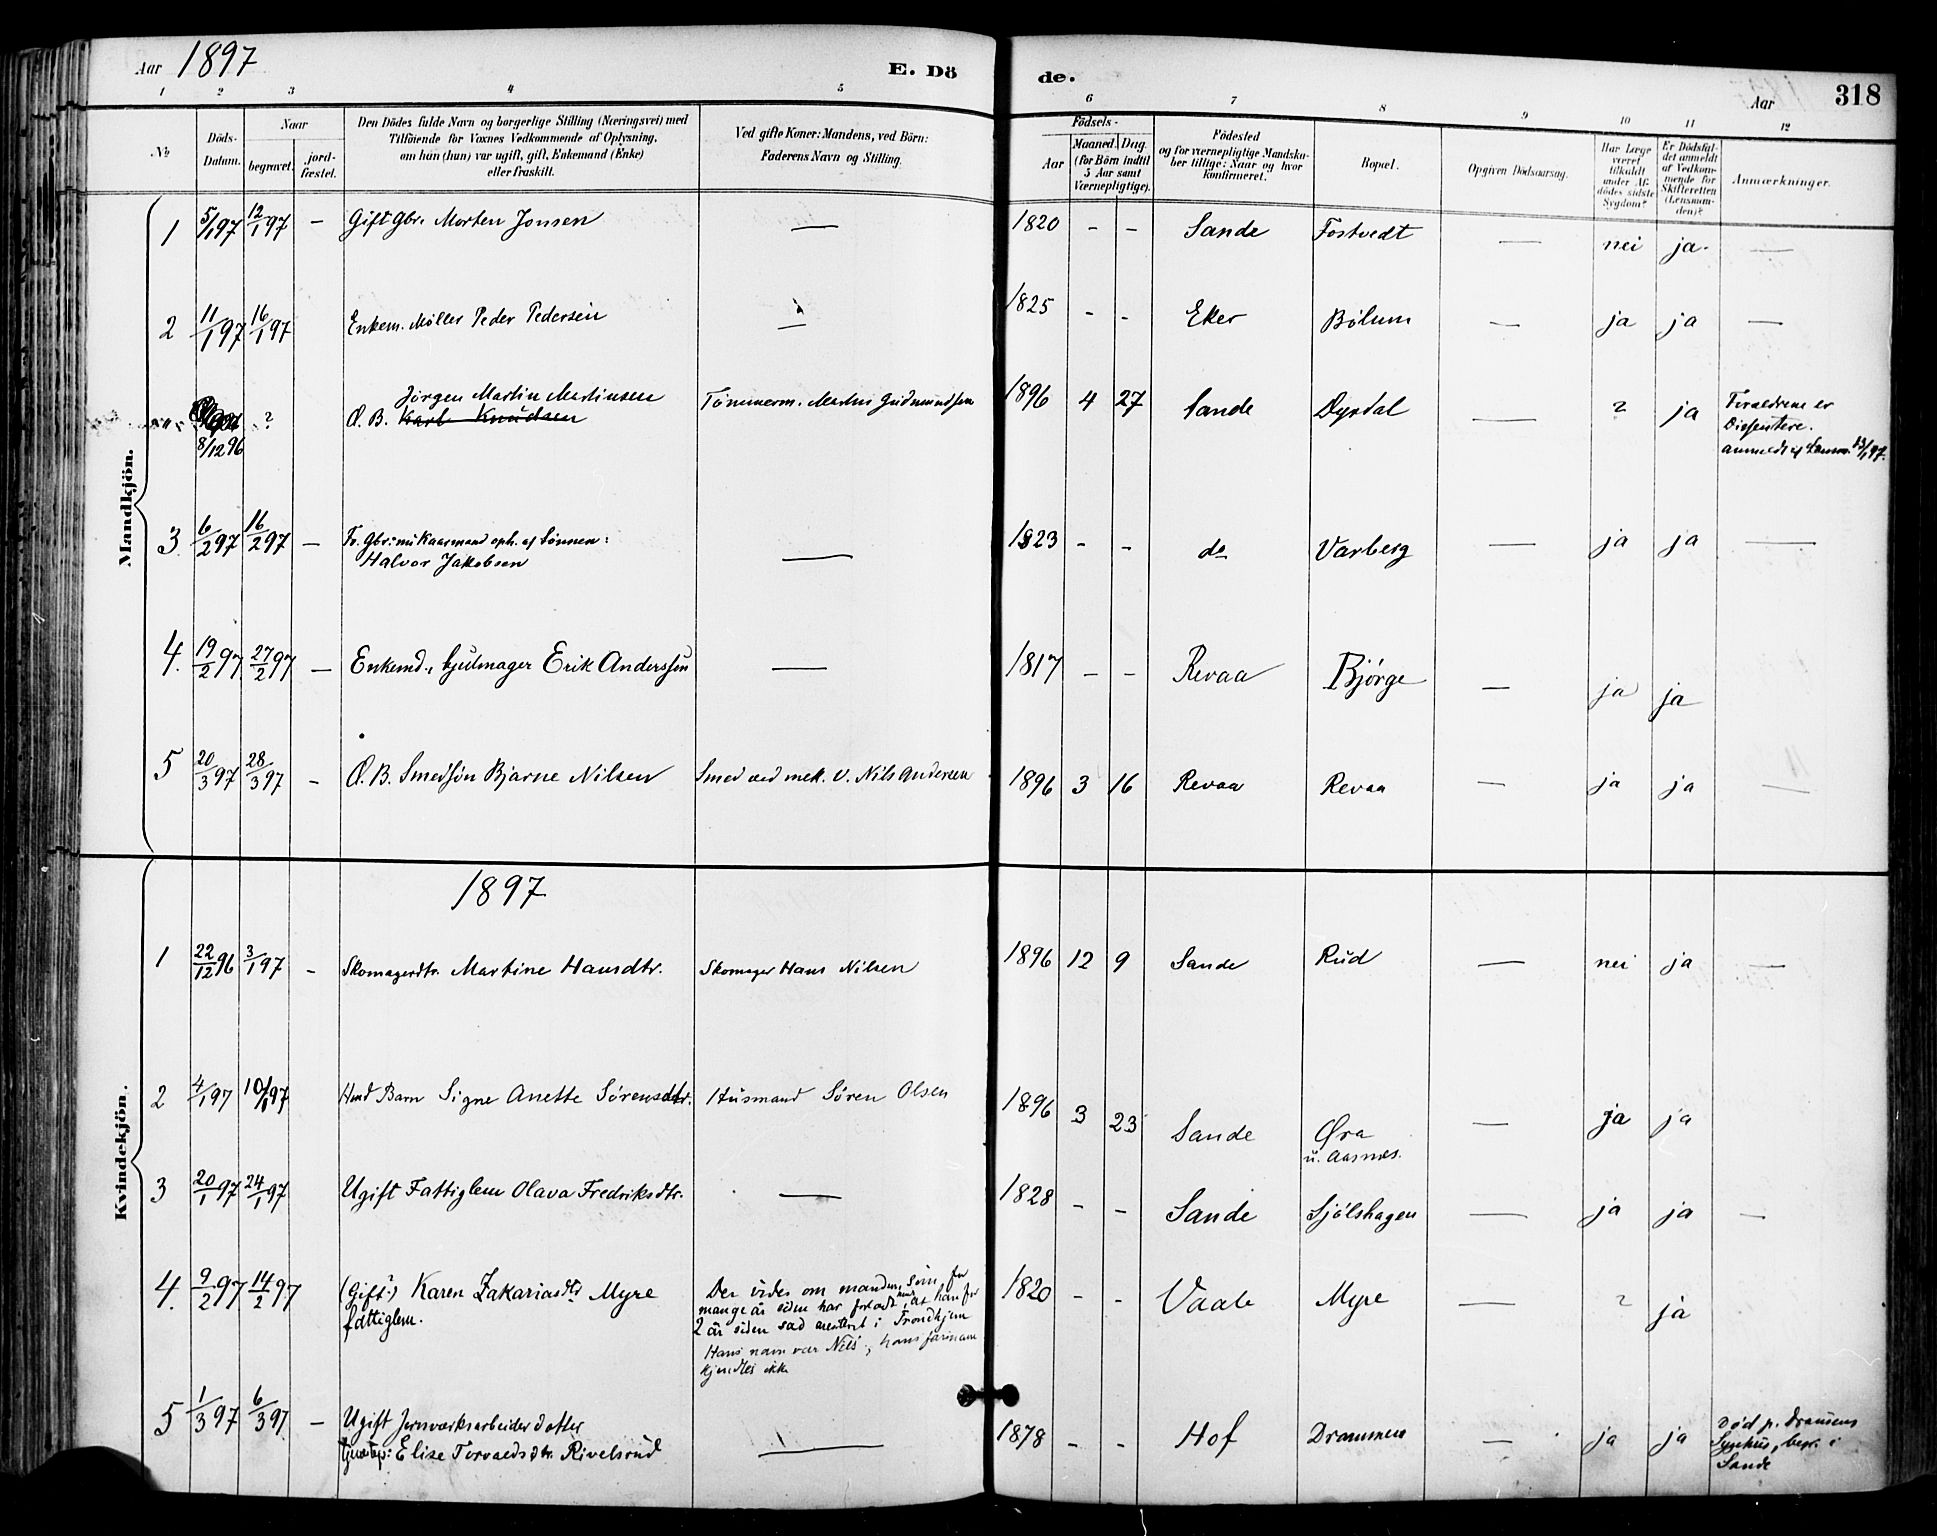 Aar 1897 E. Dö de. Aar 318
1 2 3 4 5 6 7 8 9 10 11 12
№
Döds-
Datum.
Naar
begravet.
jord-
fæstet.
Den Dödes fulde Navn og borgerlige Stilling (Næringsvei) med
Tilföiende for Voxnes Vedkommende af Oplysning,
om han (hun) var ugift, gift, Enkemand (Enke)
eller fraskilt.
Ved gifte Koner: Mandens, ved Börn:
Faderens Navn og Stilling.
Födsels-
Aar
Maaned. Dag.
(for Börn indtil
5 Aar samt
Værnepligtige).
Födested
og for værnepligtige Mandska-
ber tillige: Naar og hvor
konfirmeret.
Bopæl.
Opgiven Dödsaarsag.
Har Læge
været
tilkaldt
under Af-
dödes sidste
Sygdom?
Er Dödsfal-
det anmeldt
af Vedkom-
mende for
Skifteretten
(Lensman-
den)?
Anmærkninger.
Mandkjön.
1 5/1 97 12/1 97 — Gift Gbr. Morten Jonsen — 1820 - - Sande Fostvedt — nei ja. —
2 11/1 97 16/1 97 Enkem. Møller Peder Pedersen — 1825 - - Eker Bølum — ja ja —
Jørgen Martin Martinsen
? Ø.B. Karl Knudsen Tømmerm. Martin Gudmundsen 1896 4 27 Sande Dyrdal — ? ja
8/12 96
Foraldrene er
Dissentere.
anmeldt af Lensm. 13/1 97.
3 6/2 97 16/2 97 — Fr. Gbr: nu Kaarmand oph. af Sønnen:
Halvor Jakobsen — 1823 - - do Varberg — ja ja —
4. 19/2 97 27/2 97 — Enkemd., hjulmager Erik Anderssen — 1817 - - Revaa Bjørge — ja ja
5 20/3 97 28/3 97 - Ø.B. Smedsøn Bjarne Nilsen Smed ved mek. V. Nils Andersen 1896 3 16 Revaa Revaa — ja ja —
Kvindekjön.
1897
1 22/12 96 3/1 97 - Skomagerdtr. Martine Hansdtr. Skomager Hans Nilsen 1896 12 9 Sande Rud — nei ja —
2 4/1 97 10/1 97 Hmd Barn Signe Anette Sørensdtr. Husmand Søren Olsen 1896 3 23 Sande Øra — ja ja
u. Aasnes.
3 20/1 97 24/1 97 Ugift Fattiglem Olava Fredriksdtr. — 1828 - - Sande Sjølshagen — ja ja —
4. 9/2 97 14/2 97 (Gift?) Karen Zakariasdtr Myre 1820 - - Vaale Myre — ? ja
fattiglem.
Der vides om manden, som for
mange år siden har forladt hende, at han for
2 år siden sad arresteret i Trondhjem
Hans navn var Nils; hans farsnavn
kjendtes ikke
5 1/3 97 6/3 97 — Ugift Jernværksarbeider datter
tjenestep: Elise Torvaldsdtr. Rivelsrud — 1878 - - Hof Drammen — ja ja
Død p. Dramens
Sygehus, begr. i
Sande